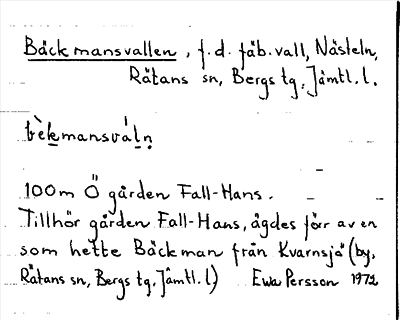 Bäckmansvallen, f.d. fäb.vall, Nästeln,
Rätans sn, Bergs tg, Jämtl.l.
bèkmansváln
100m Ö gården Fall-Hans.
Tillhör gården Fall-Hans, ägdes förr av en
som hette Bäckman från Kvarnsjö (by,
Rätans sn, Bergs tg, Jämtl.l) Ewa Persson 1972